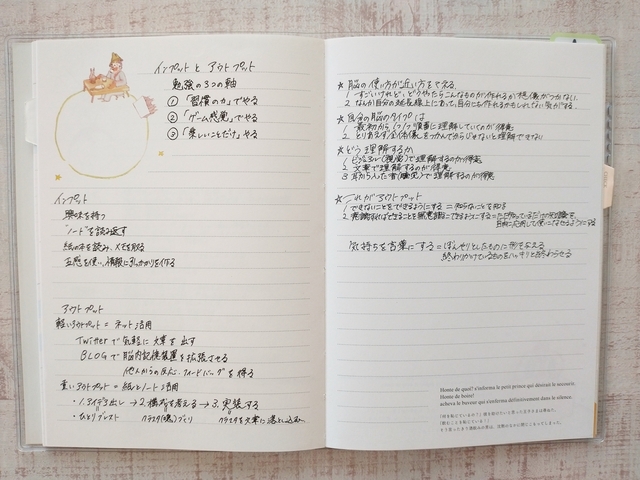 インプットと アウトプット
勉強の3つの軸
① 「習慣の力」でやる
② 「ゲーム感覚」でやる
③ 「楽しいことだけ」やる
インプット
興味を持つ
"ノート"を読み返す
絵の本を読み、メモを取る
五感を使い、情報に引っかかりを作る
アウトプット
軽いアウトプット = ネット活用
Twitterで気軽に文章を出す
BLOGで脳内記憶装置を拡張させる
他人からの反応、フィードバックを得る
重いアウトプット = 紙とノート活用
・1.アイデア出し → 2.構成を考える → 3.実装する
・ひとりブレスト クラスタ(塊)づくり クラスタを文章に落とし込み
★ 脳の使い方が近い方をマネる
1 すごいけれど、どうやったらこんなものが作れるか想像がつかない
2 なんか自分の延長線上にあって、自分にも作れるかもしれない気がする
★ 自分の脳のタイプは
1 最初から1つ1つ順番に理解していくのが得意
2 とりあえず全体像をつかんでからじゃないと理解できない
★ どう理解するか
1 ビジュアル(視覚)で理解するのが得意
2 文章で理解するのが得意
3 耳から入った音(聴覚)で理解するのが得意
★ これがアウトプット
1 できないことをできるようにする = 知らないことを知る
2 意識すればできることを無意識にできるようにする = ただ知っているだけの知識を
自由に応用して使いこなせるようにする
気持ちを言葉にする = ぼんやりとしたものに形を与える
終わりかけているものをハッキリと終わらせる
Honte de quoi? s'informa le petit prince qui désirait le secourir.
Honte de boire!
acheva le buveur qui s'enferma définitivement dans le silence.